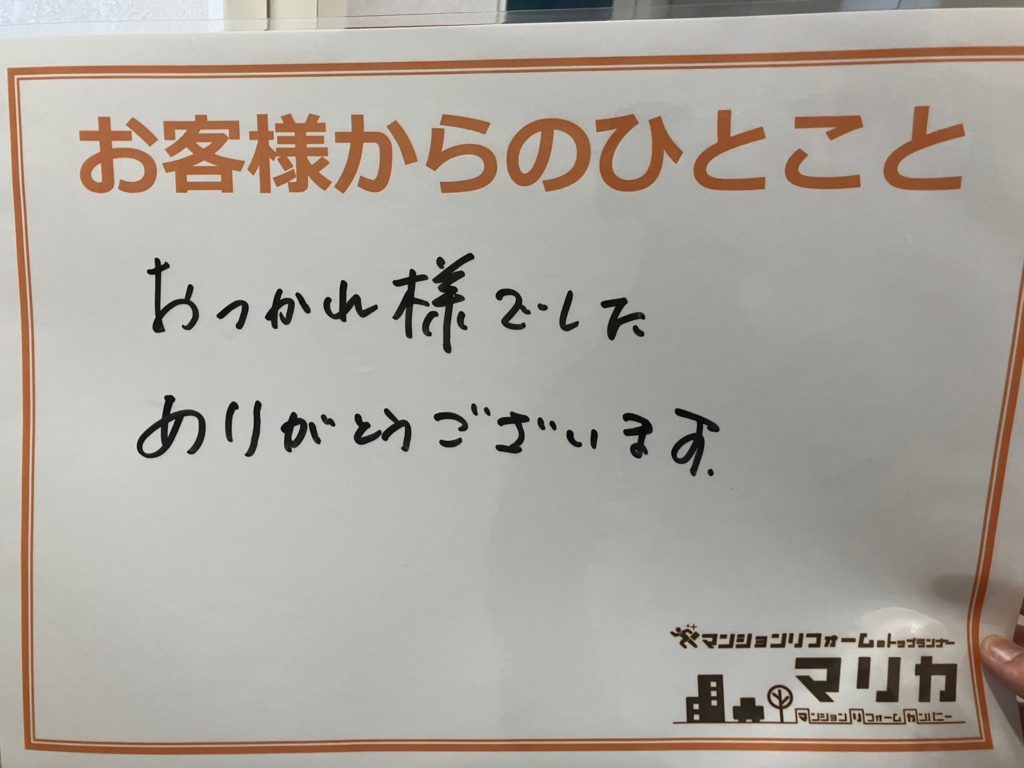 お客様からのひとこと
おつかれ様でした
ありがとうございます.
マンションリフォームのトップランナー
マリカ
マンションリフォームカンパニー